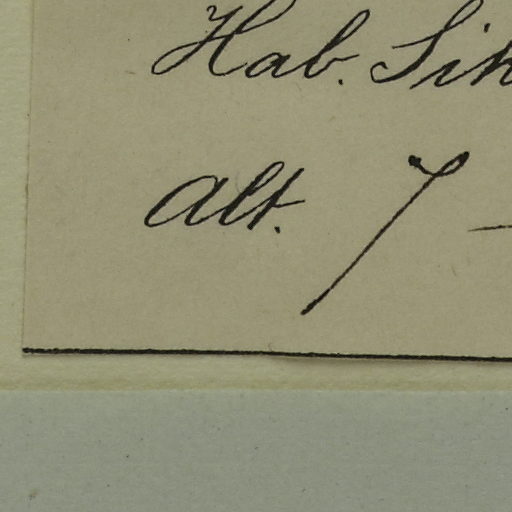 Hab. Sik
Alt. 7 -